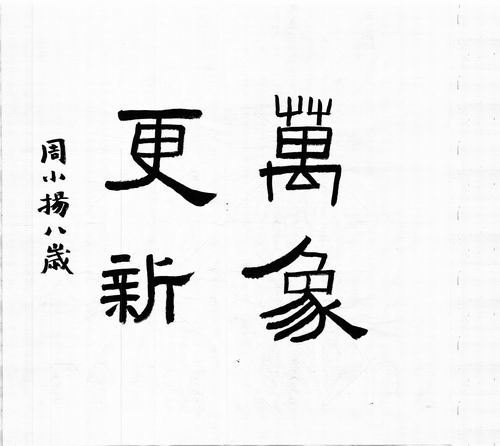 萬象
更新
周小揚八歲